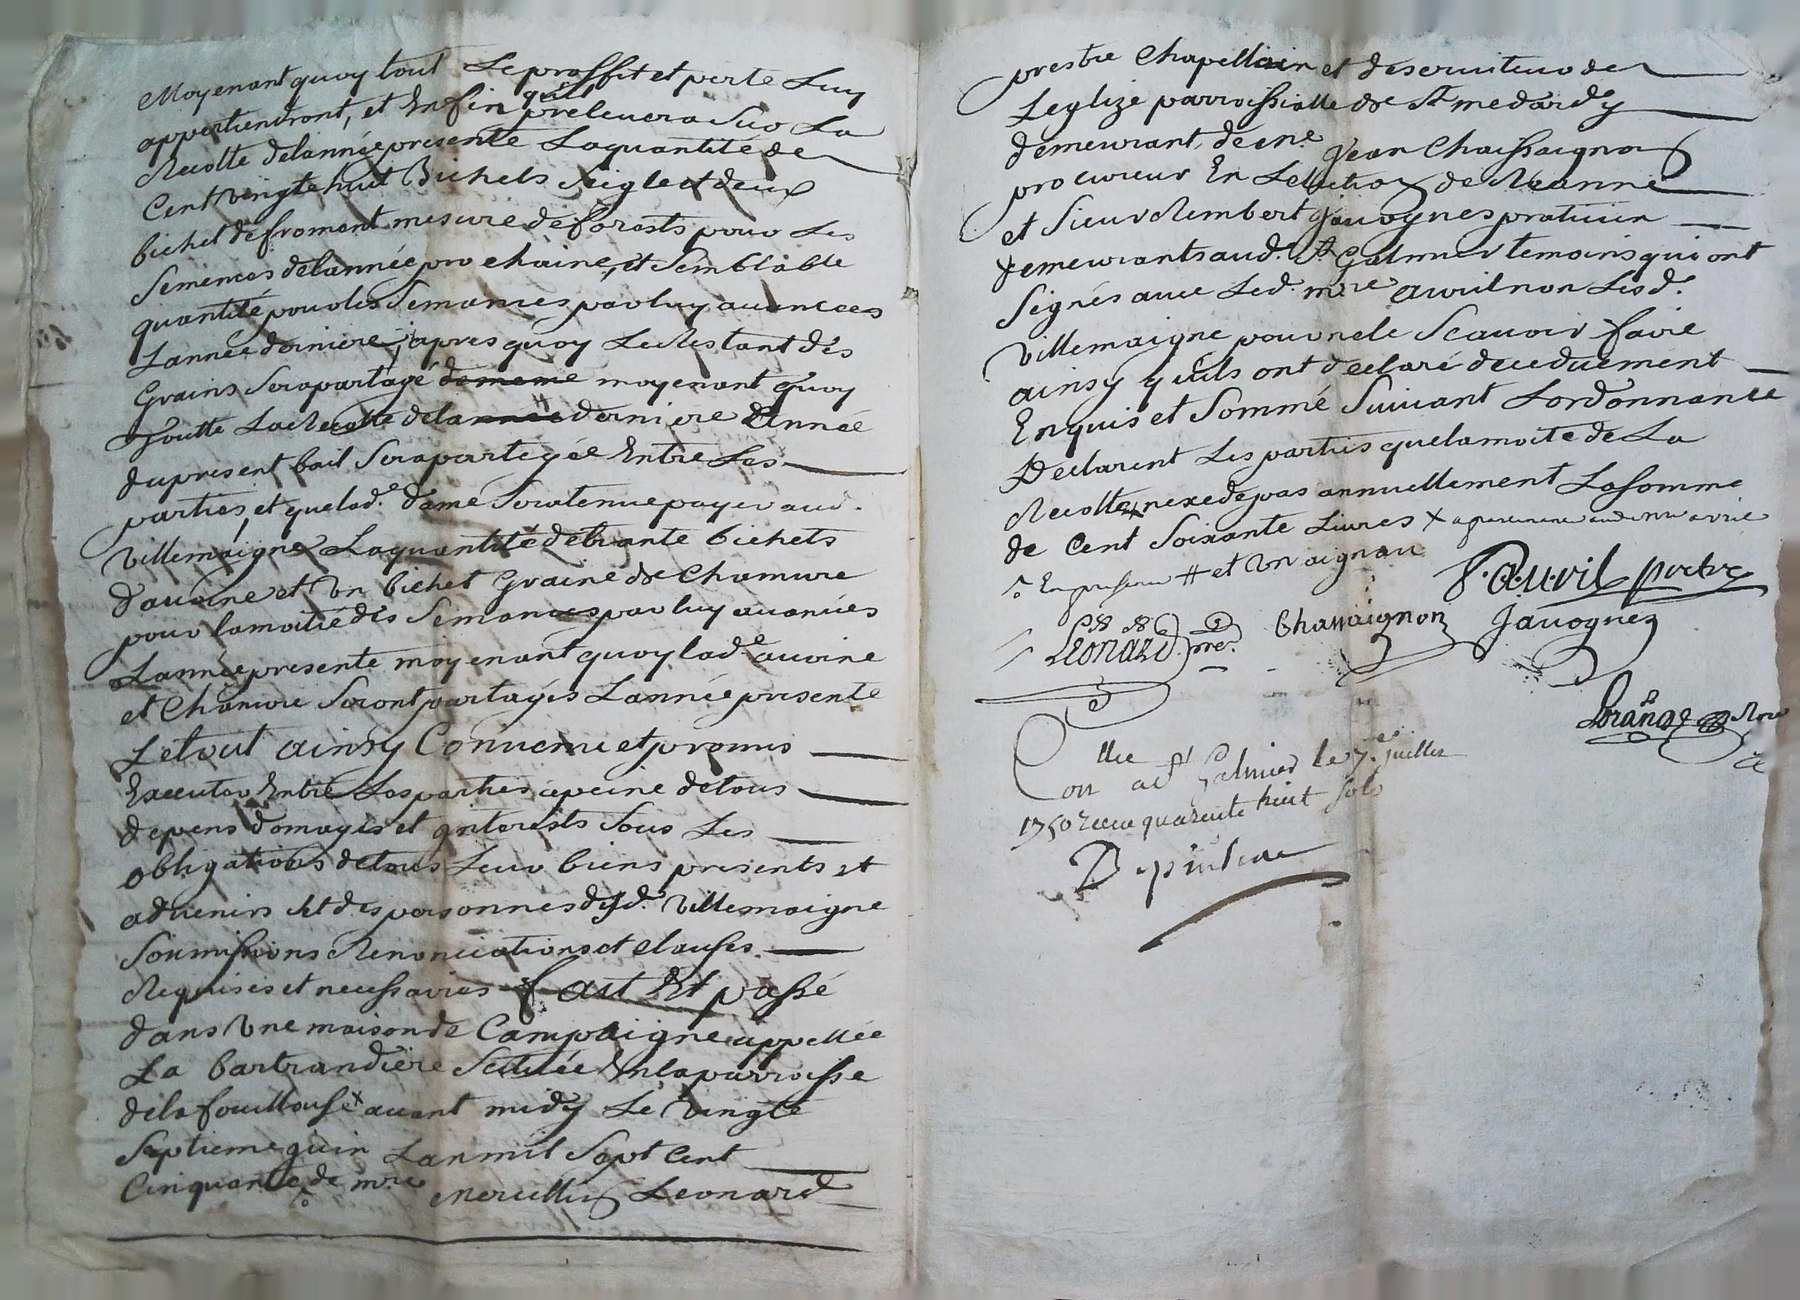 Moyenant quoy tout Le proffit et perte Luy
appertiendront, et Enfin qu'il prelevera sur La
Recolte delannée presente Laquantité de
Cent vingt huit Bichets Seigle et deux
bichet defroment mesure deforests pour Les
Semences delannée prochaine, et Semblable
quantité pour les Semances par luy avancees
Lannée derniere, apres quoy Le Restant des
Grains Sera partagé dememe moyenant quoy
Toutte La Recolte delannée derniere Année
dupresent bail Sera partegée Entre Les
parties, et quelad.e dame Sera tenue payer aud.
Villemaigne Laquantité detrante bichets
davoine et Un bichet Graine de Chamure
pour lamoitié des Semances par luy avancées
Lannée presente moyenant quoy lad.e avoine
et Chanvre Seront partagés Lannée presente
Letout ainsy Convenu et promis
Executer Entre Les parties apeine detous
depens domages et interests Sous Les
obligations detous Leur biens presents et
advenirs et des personnes desd. Villemaigne
Soumissions Renonciations et clauses
Requises et necessaires fait Et passé
dans Une maison de Campaigne appellée
La bartrandiere Scituée En la parroisse
dela fouillouse x avant midy Le vingt
Septieme juin Lan mil Sept Cent
Cinquante de m.re Leonard
prestre Chapellain et deserviteur de
Leglize parroissialle de St medard y
demeurant, de m.e Jean Chassaignon
procureur En Lelection de Roanne
et Sieur Rembert Javognes praticien
demeurants aud. St Galmier temoins qui ont
Signés avec Led. m.re avril non Lesd.
Villemaigne pour nele Scavoir faire
ainsy quils ont declaré deceduement
Enquis et Sommé Suivant Lordonnance
Declarent Les parties quelamoité de La
Recolte nexede pas annuellement La Somme
de Cent Soixante Livres x
# et Un aignau
F. Avril prtre
Leonard pre. Chassaignon Javognes
Lorange
Con.llé a St Galmier le 7.e juillet
1750 receu quarente huit sols